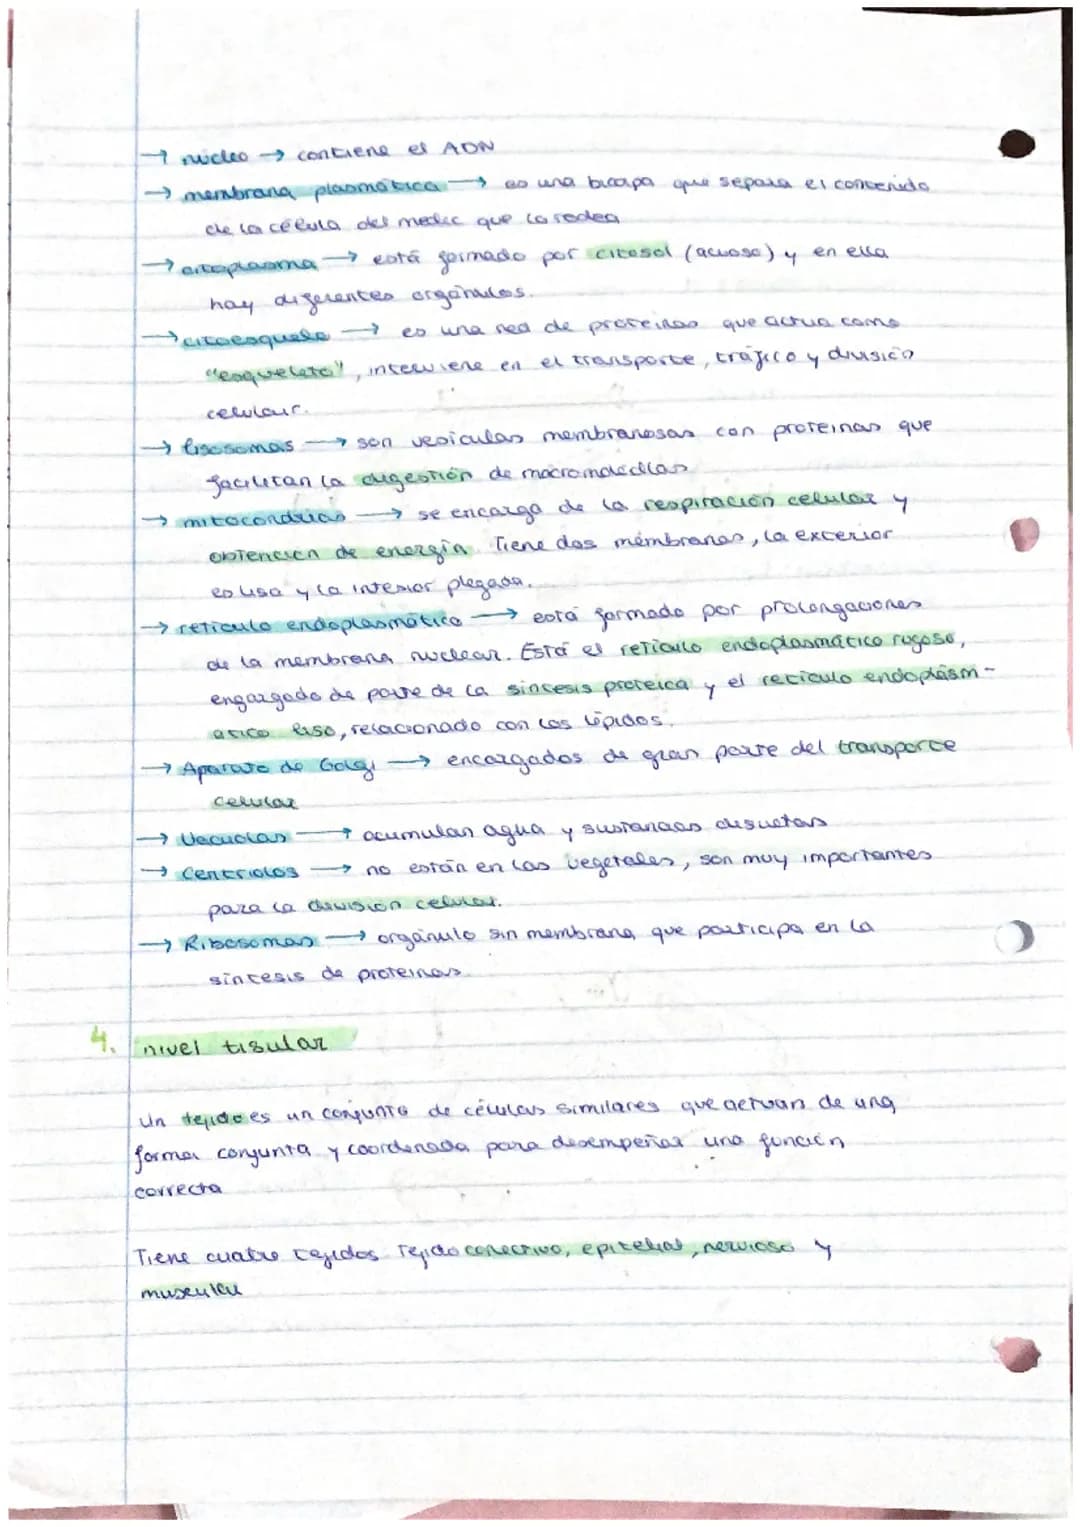 → núcleo → contiene el ADN
→ membrana plasmática → es una bicapa que separa el contenido
de la célula del medio que la rodea
→ citoplasma → está formado por citosol (acuoso) y en ella
hay diferentes orgánulos.
→ citoesqueleto → es una red de proteínas que actua como
"esqueleto", interviene en el transporte, tráfico y división
celular.
→ lisosomas → son vesículas membranosas con proteínas que
facilitan la digestión de macromoléculas
→ mitocondrias → se encarga de la respiración celular y
obtención de energía. Tiene dos membranas, la exterior
es lisa y la interior plegada.
→ retículo endoplasmático → está formado por prolongaciones
de la membrana nuclear. Está el retículo endoplasmático rugoso,
engargado de parte de la síntesis proteica y el retículo endoplasm-
atico liso, relacionado con los lípidos.
→ Aparato de Golgi → encargados de gran parte del transporte
celular
→ Vacuolas → acumulan agua y sustancias disueltas
→ Centriolos → no están en las vegetales, son muy importantes
para la división celular.
→ Ribosomas → orgánulo sin membrana que participa en la
síntesis de proteínas.
4. nivel tisular
Un tejido es un conjunto de células similares que actuan de una
forma conjunta y coordenada para desempeñar una función
correcta
Tiene cuatro tejidos. Tejido conectivo, epitelial, nervioso y
muscular